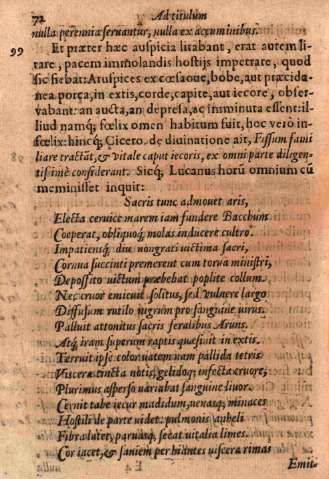 72 Ad titulum
nulla perennia seruantur, nulla ex acuminibus.
99 Et præter hæc auspicia litabant, erat autem li-
tare, pacem immolandis hostijs impetrare, quod
sic fiebat: Aruspices ex cæsa oue, boue, aut præcida-
nea porca, in extis, corde, capite, aut iecore, obser-
vabant: an aucta, an depressa, ac imminuta essent: il-
lud namq; fœlix omen habitum fuit, hoc verò in-
fœlix: hinc, Cicero. de diuinatione ait, Fissum fami
liare tractãt, & vitale caput iecoris, ex omni parte diligen-
tissimè considerant. Sicq; Lucanus horũ omnium cũ
meminisset inquit:
Sacris tunc admouet aris,
Electa ceruice marem iam fundere Bacchum
Cœperat, obliquoq; molas inducere cultro.
Impatiensq; diu non grati victima sacri,
Cornua succinti premerent cum torua ministri,
Deposito victum præbebat poplite collum.
Nec cruor emicuit solitus, sed vulnere largo
Diffusum rutilo nigrum pro sanguine virus.
Palluit attonitus sacris feralibus Aruns.
Atq; iram superum raptis quæsiuit in extis.
Terruit ipse color vatem nam pallida tetris
Viscera tincta notis, gelidoq; infecta cruore,
Plurimus asperso variabat sanguine liuor.
Cernit tabe iecur madidum, venasq; minaces
Hostili de parte videt. pulmonis anheli
Fibra latet, paruusq; secat vitalia limes.
Cor iacet, & saniem per hiantes viscera rimas
Emit-